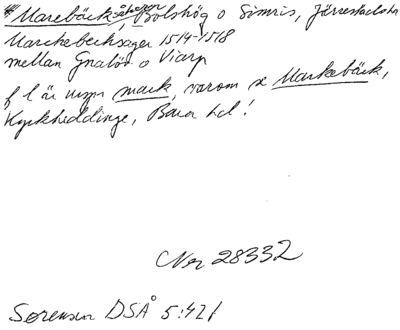 * Marebäck såkern, Bolshög o Simris, Järrestads hd
Marckebecksager 1514-1518
mellan Gnalöv o Viarp
f l är nypr mark, varom se Markebäck,
Kyrkheddinge, Bara hd!
Nr 28332
Sørensen DSÅ 5:421